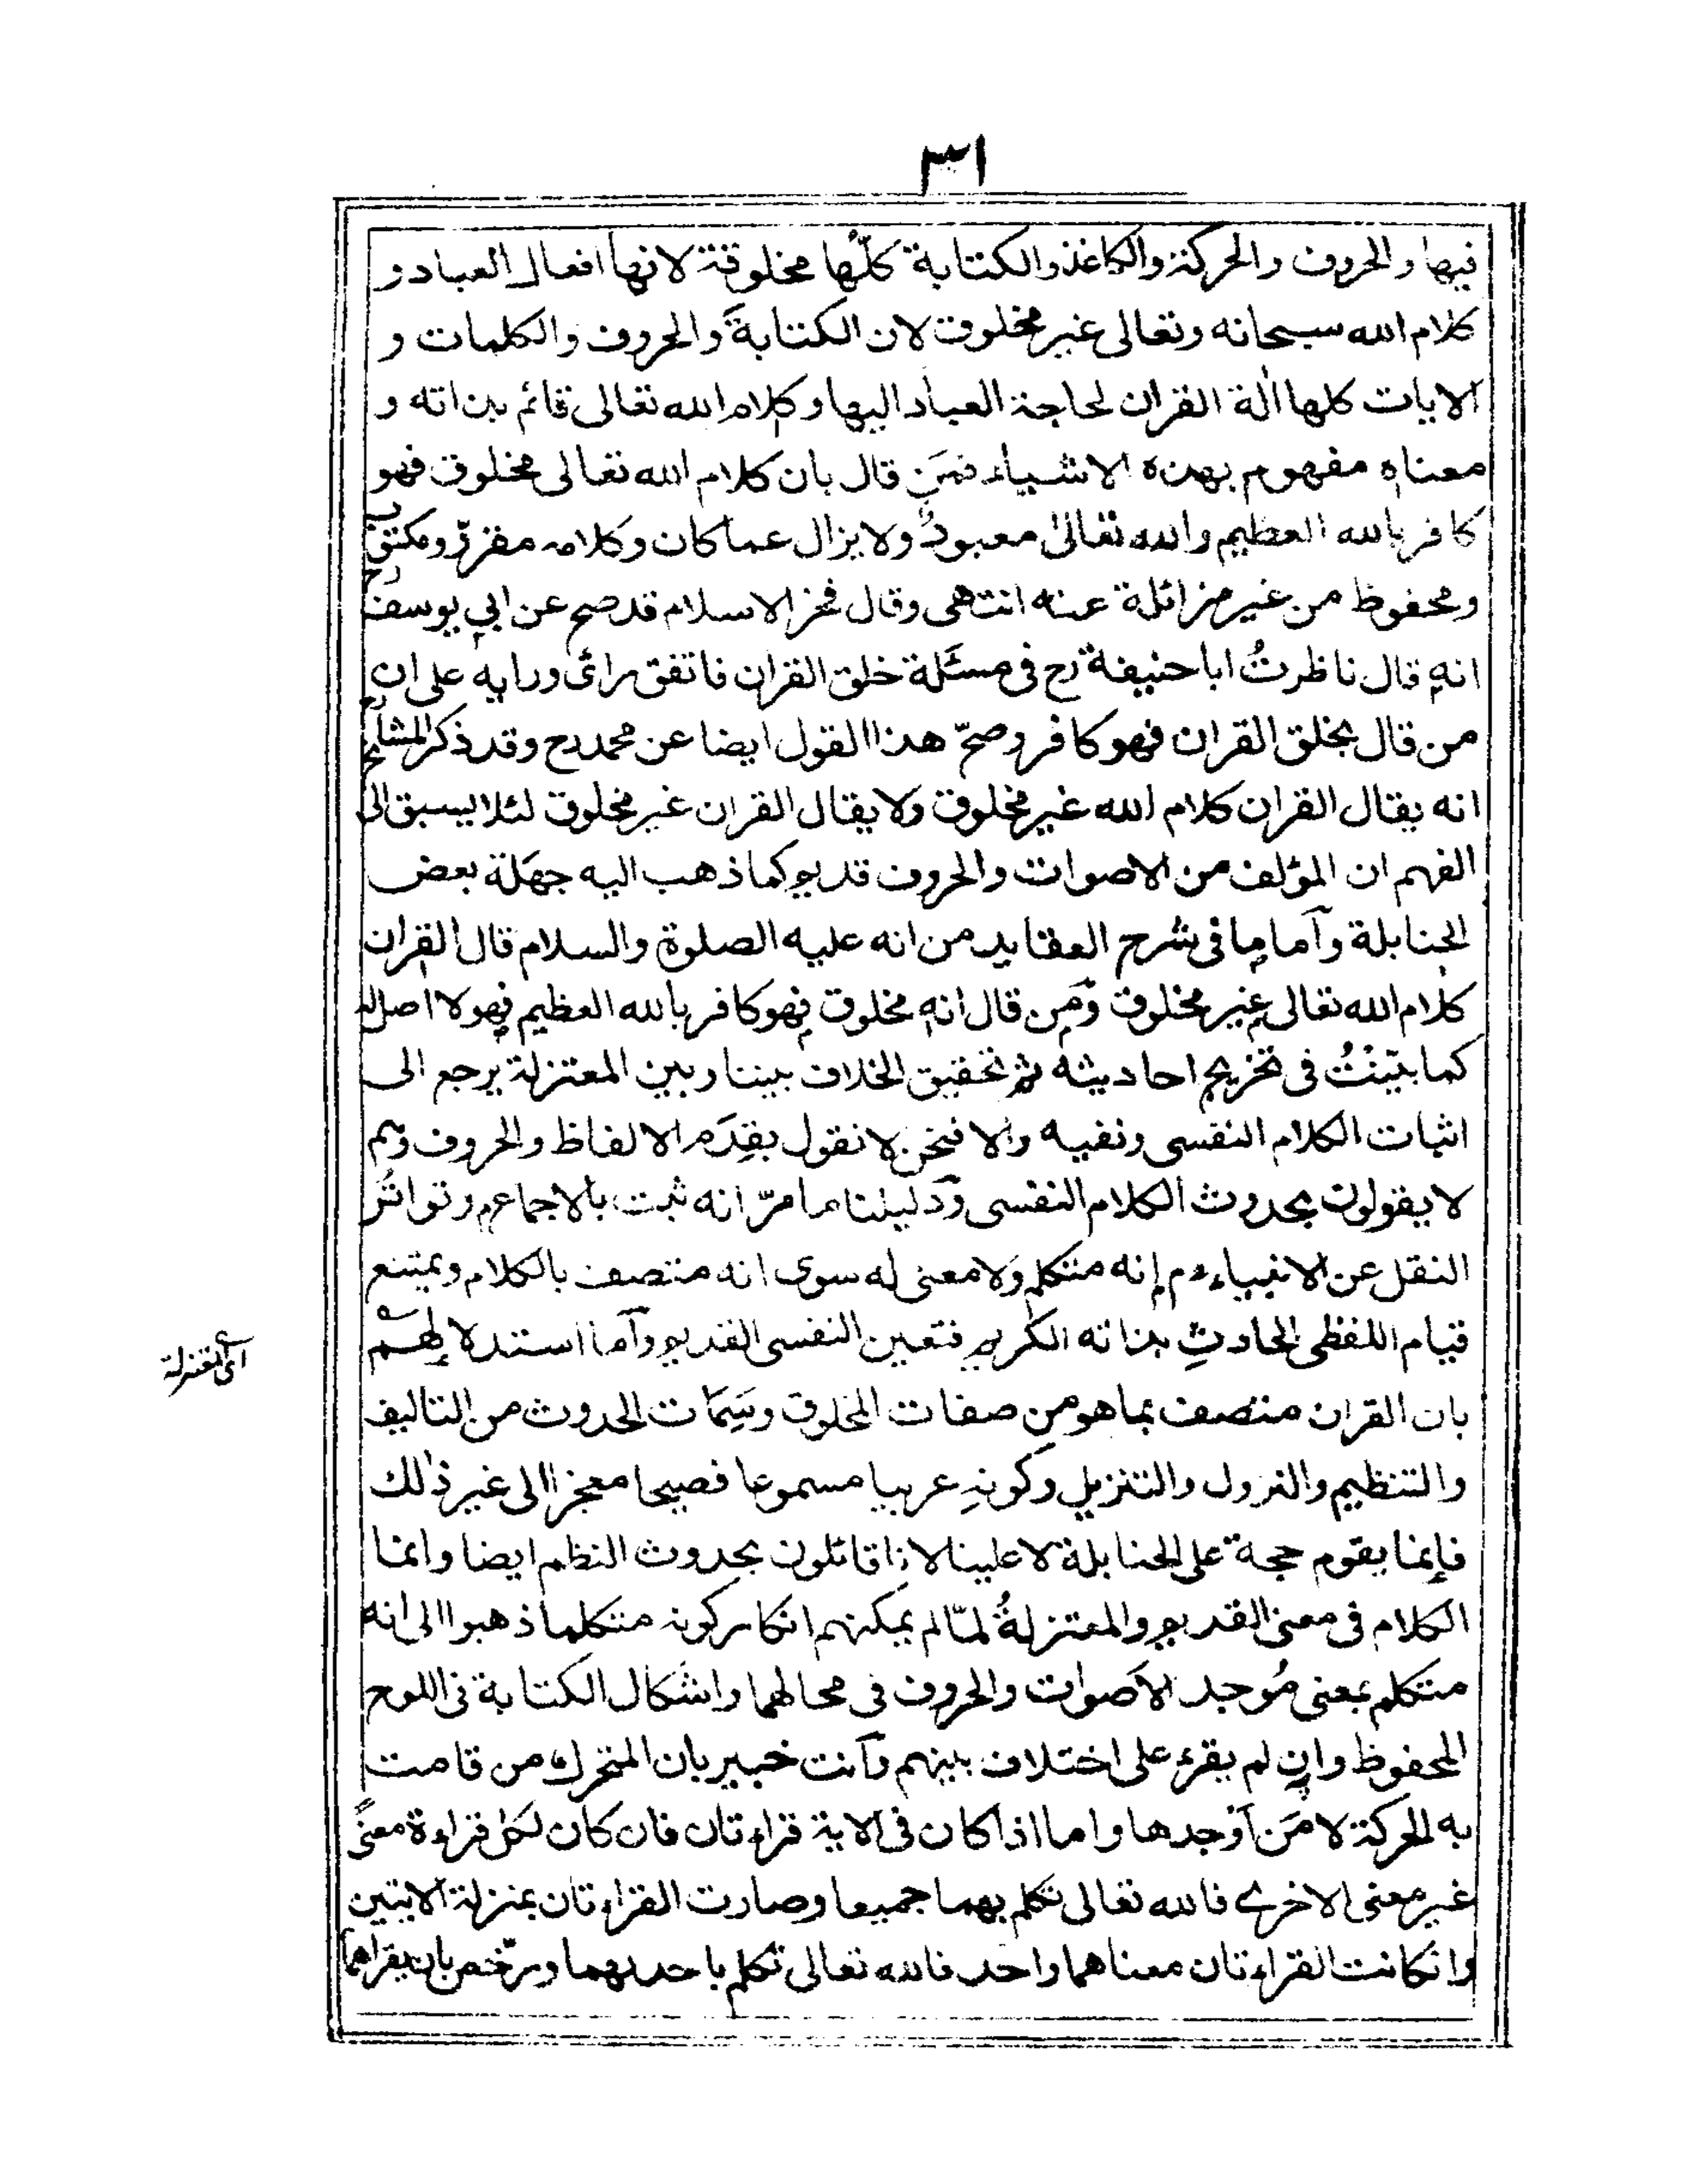 ٣١
فيها والحروف والحركة والكاغذ والكتابة كلُّها مخلوقة لانها افعال العباد و
كلام الله سبحانه وتعالى غير مخلوق لان الكتابةَ والحروف والكلمات و
الايات كلها اٰلة القران لحاجة العباد اليها وكلام الله تعالى قائم بذاته و
معناه مفهوم بهذه الاشياء فمَن قال بان كلام الله تعالى مخلوق فهو
كافر بالله العظيم والله تعالىٰ معبودٌ ولا يزال عما كان وكلامه مقرؤ ومكتوب
ومحفوظ من غير مزائلة عنه انتهى وقال فخر الاسلام قد صح عن ابي يوسف رح
انه قال ناظرتُ ابا حنيفة رح فى مسئَلة خلق القران فاتفق رائى ورايه على ان
من قال بخلق القران فهو كافر وصحّ هذا القول ايضا عن محمد رح وقد ذكر المشايخ رح
انه يقال القران كلام الله غير مخلوق ولا يقال القران غير مخلوق لئلا يسبق الى
الفهم ان المؤلف من الاصوات والحروف قديم كما ذهب اليه جهَلة بعض
الحنابلة وآما ما فى شرح العقايد من انه عليه الصلوة والسلام قال القران
كلام الله تعالى غير مخلوق ومَن قال انه مخلوق فهو كافر بالله العظيم فهو لا اصل له
كما بيّنْتُ فى تخريج احاديثه ثم تحقيق الخلاف بيننا وبين المعتزلة يرجع الى
اثبات الكلام النفسى ونفيه والا فنحن لا نقول بقِدَم الالفاظ والحروف وهم
لا يقولون بحدوث الكلام النفسى ودليلنا ما مرّ انه ثبت بالاجماع وتواتُر
النقل عن الانبياء ءم انه متكلم ولا معنى له سوى انه متصف بالكلام ويمتنع
قيام اللفظى الحادثِ بذاته الكريم فتعين النفسى القديم وآما استدلالهم
اى المعتزلة
بان القران متصف بما هو من صفات المخلوق وسِمَات الحدوث من التاليف
والتنظيم والنزول والتنزيل وكونهِ عربيا مسموعا فصيحا معجزا الى غير ذٰلك
فإنما يقوم حجة على الحنابلة لا علينا لانا قائلون بحدوث النظم ايضا وانما
الكلام فى معنى القديم والمعتزلةُ لمّا لم يمكنهم انكار كونه متكلما ذهبوا الى انه
متكلم بمعنى مُوجد الاَصوات والحروف فى محالها واشكال الكتابة فى اللوح
المحفوظ وان لم يقرء على اختلاف بينهم وآنت خبير بان المتحرك من قامت
به الحركة لا مَن اَوْجدها واما اذا كان فى الاية قراءتان فان كان لكل قراءة معنًى
غير معنى الاخرى فالله تعالى تكلم بهما جميعا وصارت القراءتان بمنزلة الايتين
وانكانت القراءتان معناهما واحد فالله تعالى تكلم باحدٰهما ورخّص بان يقراهما